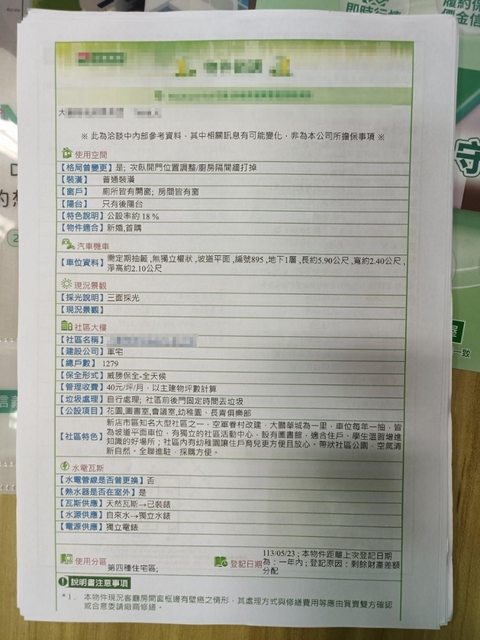 即時行情
履約保
價金信
守
一致
大
※ 此為洽談中內部參考資料，其中相關訊息有可能變化，非為本公司所擔保事項 ※
使用空間
【格局曾變更】是; 次臥開門位置調整/廚房隔間牆打掉
【裝潢】 普通裝潢
【窗戶】 廁所皆有開窗; 房間皆有窗
【陽台】 只有後陽台
【特色說明】公設率約 18 %
【物件適合】新婚,首購
汽車機車
【車位資料】需定期抽籤 ,無獨立權狀 ,坡道平面 ,編號895 ,地下1層 ,長約5.90公尺 ,寬約2.40公尺 ,
淨高約2.10公尺
現況景觀
【採光說明】三面採光
【現況景觀】
社區大樓
【社區名稱】
【建設公司】軍宅
【總戶數】 1279
【保全形式】威勝保全-全天候
【管理收費】40元/坪/月，以主建物坪數計算
【垃圾處理】自行處理; 社區前後門固定時間丟垃圾
【公設項目】花園,圖書室,會議室,幼稚園、長青俱樂部
【社區特色】新店市區知名大型社區之一，空軍眷村改建，大鵬華城為一里，車位每年一抽，皆
為坡道平面車位，有獨立的社區活動中心，設有圖書館，適合住戶，學生溫習增進
知識的好場所；社區內有幼稚園讓住戶育兒更方便且放心。帶狀社區公園，空氣清
新自然。全聯進駐，採購方便。
水電瓦斯
【水電管線是否曾更換】否
【熱水器是否在室外】是
【瓦斯供應】天然瓦斯→已裝錶
【水源供應】自來水→獨立水錶
【電源供應】獨立電錶
使用分區 第四種住宅區;
登記日期 113/05/23 ; 本物件距離上次登記日期
為：一年內 ; 登記原因：剩餘財產差額
分配
說明書注意事項
*1. 本物件現況客廳房間窗框邊有壁癌之情形，其處理方式與修繕費用等應由買賣雙方確認
或合意委請廠商修繕。